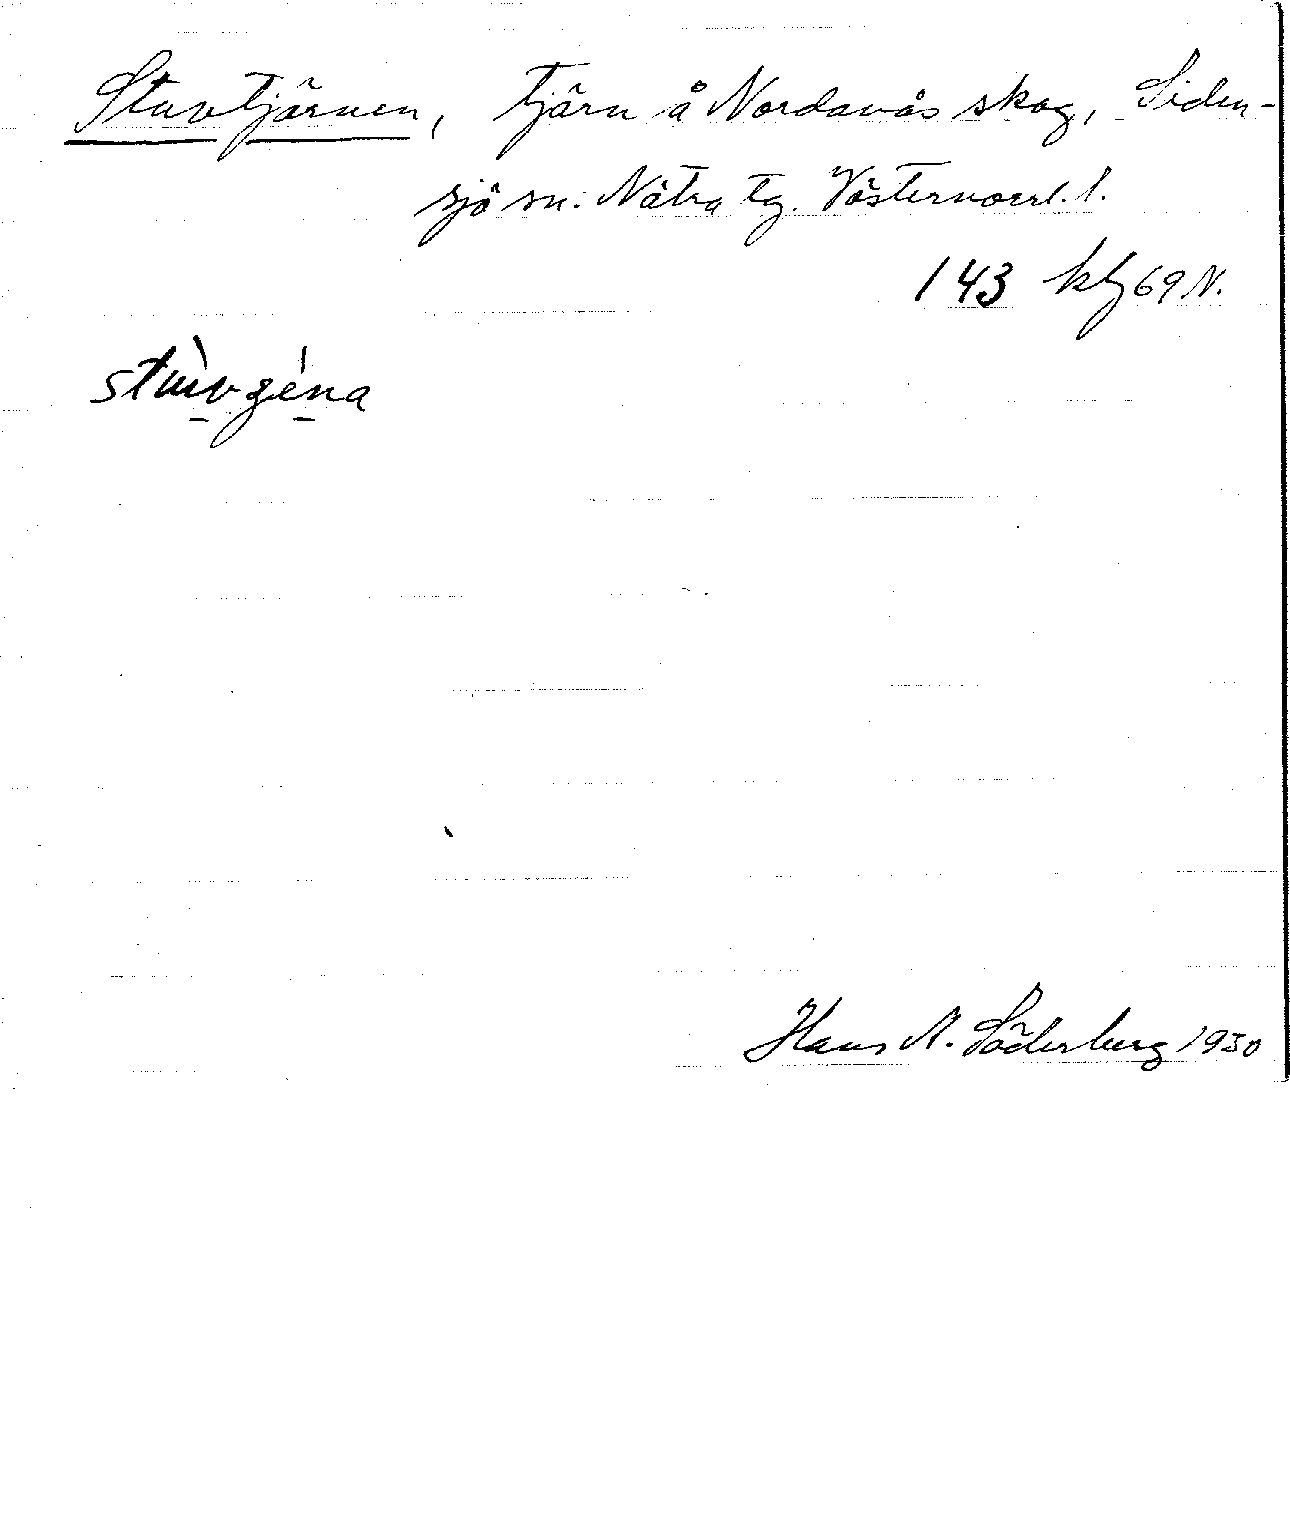 Stuvtjärnen, tjärn å Nordanås skog, Siden-
sjö sn. Nätra tg. Västernorrl. l.
143 kbl 69 N.
Hans A. Söderberg 1930